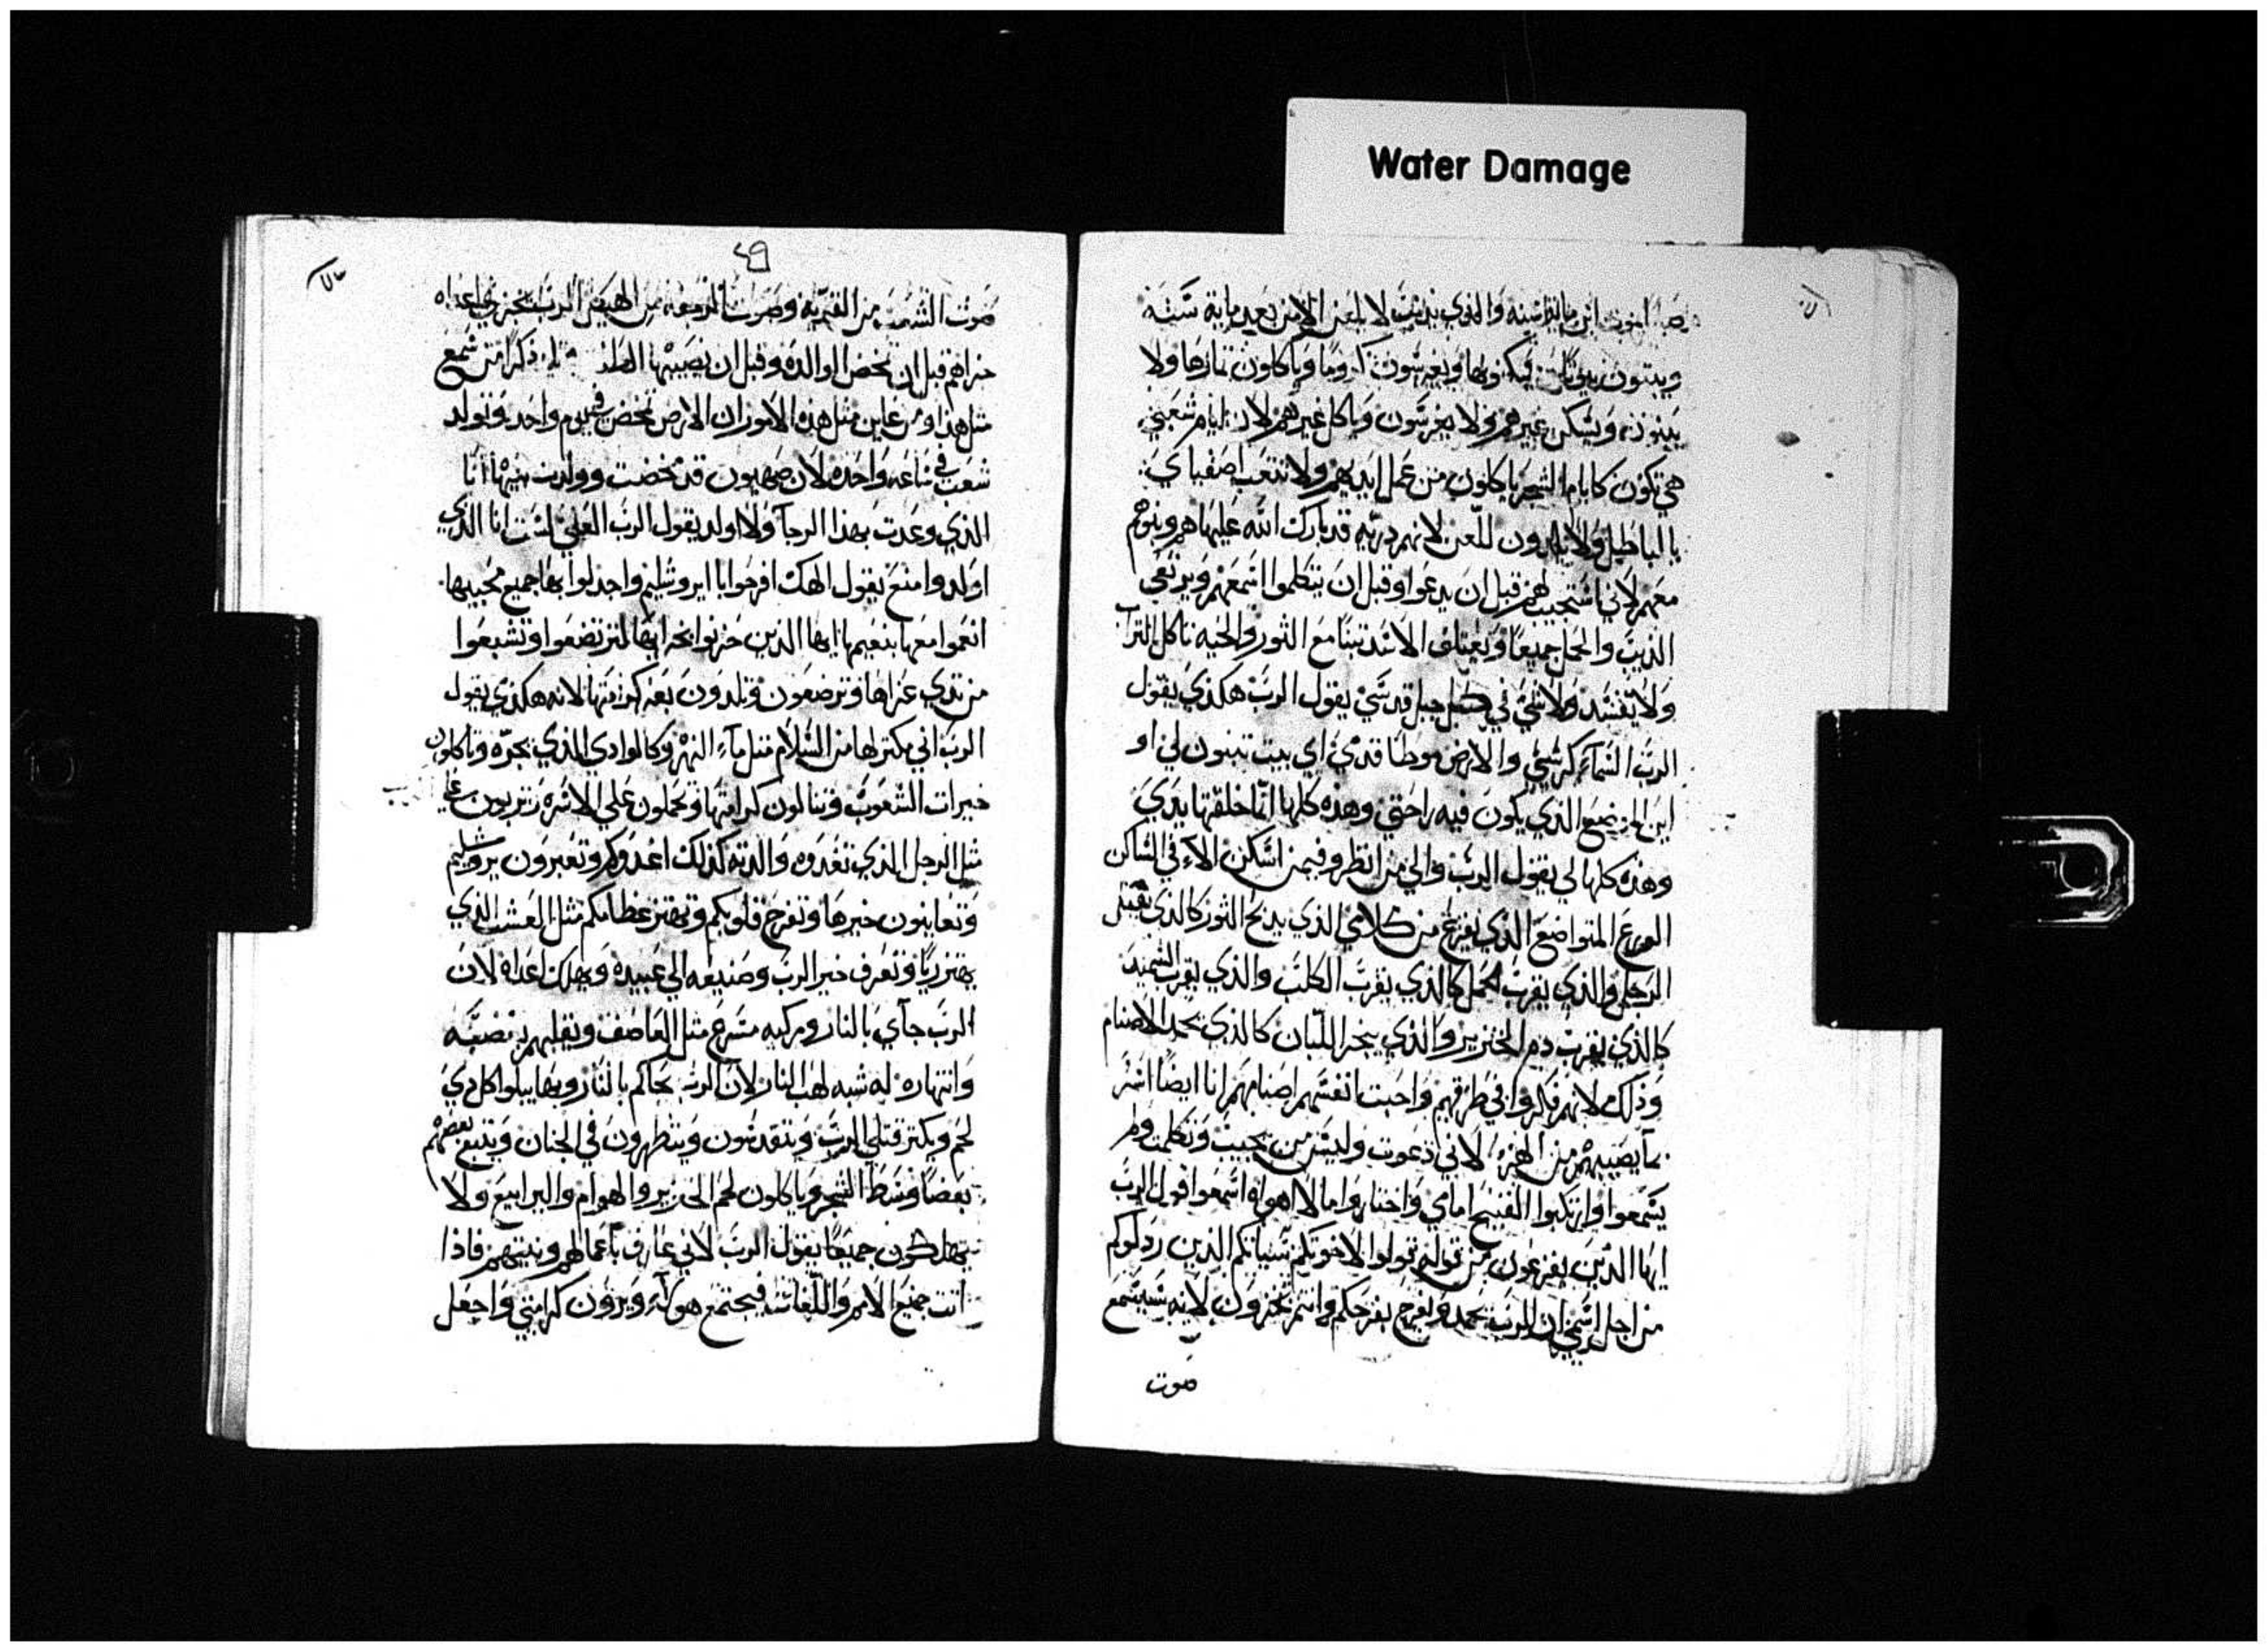 Water Damage
ابن ماية سنة والذي يذنب لا يلعن الا من بعد ماية سنة
ويبنون بيوتا ويغرسون كروما وياكلون ثمارها ولا
يبنون ويسكن غيرهم ولا يغرسون وياكل غيرهم لان ايام شعبي
هي تكون كايام الشجر ياكلون من عمل ايديهم ولا تتعب اصفياي
بالباطل ولا يلدون للعن لانهم دريه قد بارك الله عليها هم وبنوهم
معهم لاني استجيب لهم قبل ان يدعوا وقبل ان يتكلموا اسمعهم ويرتعي
الديب والحمل جميعا ويعتلف الاسد تبنا مع الثور والحيه تاكل التراب
ولا يفسد ولا شي في كل جبل قدسي يقول الرب هكذي يقول
الرب السماء كرسي والارض موطا قدمي اي بيت تبنون لي او
اين الموضع الذي يكون فيه راحتي وهذه كلها انا خلقتها يدي
وهذه كلها لي يقول الرب والي من انظر وفيمن اسكن الا في الساكن
الورع المتواضع الذي يفزع من كلامي الذي يدبح الثور كالذي يقتل
الرجل والذي يقرب الحمل كالذي يقرب الكلب والذي يقرب السميد
كالذي يقرب دم الخنزير والذي يبخر اللبان كالذي يحمد الاصنام
وذلك لانهم فكروا في طرقهم واحبت انفسهم اصنامهم انا ايضا اسر
بما يصيبهم من الهزء لاني دعوت وليس من يجيب وتكلمت ولم
يسمعوا وارتكبوا القبيح امامي واختاروا ما لا اهواه اسمعوا قول الرب
ايها الذين يفزعون من قوله قولوا لاخوتكم شنيانكم الذين ردلوكم
من اجل اسمي ان الرب يحمد ويفرح بفرحكم وانتم تخزون لانه سيسمع
صوت
٤٩
صوت الشعب من القرية وصوت من الهيكل الرب يجزي اعداه
جزاهم قبل ان تمخض الوالده وقبل ان يصيبها الطلق ذكرا من سمع
مثل هذا ومن عاين مثل هذه الامور ان الارض تمخض في يوم واحد وتولد
شعب في ساعه واحده لان صهيون قد مخضت وولدت بنيها انا
الذي وعدت بهذا الرجا ولا اولد يقول الرب العلي لست انا الذي
اولد وامنع يقول الهك افرحوا يا ايروشليم واجذلوا بها جميع محبيها
انعموا معها بنعيمها ايها الذين حزنوا بخرابها لترتضعوا وتشبعوا
من تدي عزاها وترضعون وتلدون بعد كرامتها لانه هكذي يقول
الرب اني مكتر لها من السلام متل ماء النهر وكالوادي الذي يجره وتاكلون
خيرات الشعوب وتنالون كرامتها وتحملون علي الاسره وتربون علي
مثل الرجل الذي تغدوه والدته كذلك اغدوكم وتعبرون يروشليم
وتعاينون خيرها وتفرح قلوبكم وتهتز عظامكم مثل العشب الذي
يهتز ريا وتعرف خير الرب وصنيعه الي عبيده ويهلك اعداه لان
الرب جآي بالنار ومركبه مسرع مثل العاصف ويقلبهم بغضبه
وانتهاره له شبه لهب النار لان الرب يحاكم بالنار وبها يبلوا كل دي
لحم ويكتر قتلي الرب ويتقدسون ويتطهرون في الجنان ويتبع بعضهم
بعضا وسط الشجر وياكلون لحم الخنزير والهوام واليرابيع ولا
يهلكون جميعا يقول الرب لاني عارف باعمالهم ونيتهم فاذا
اتت جميع الامم واللغات فيجتمع هولآء ويرون كرامتي واجعل